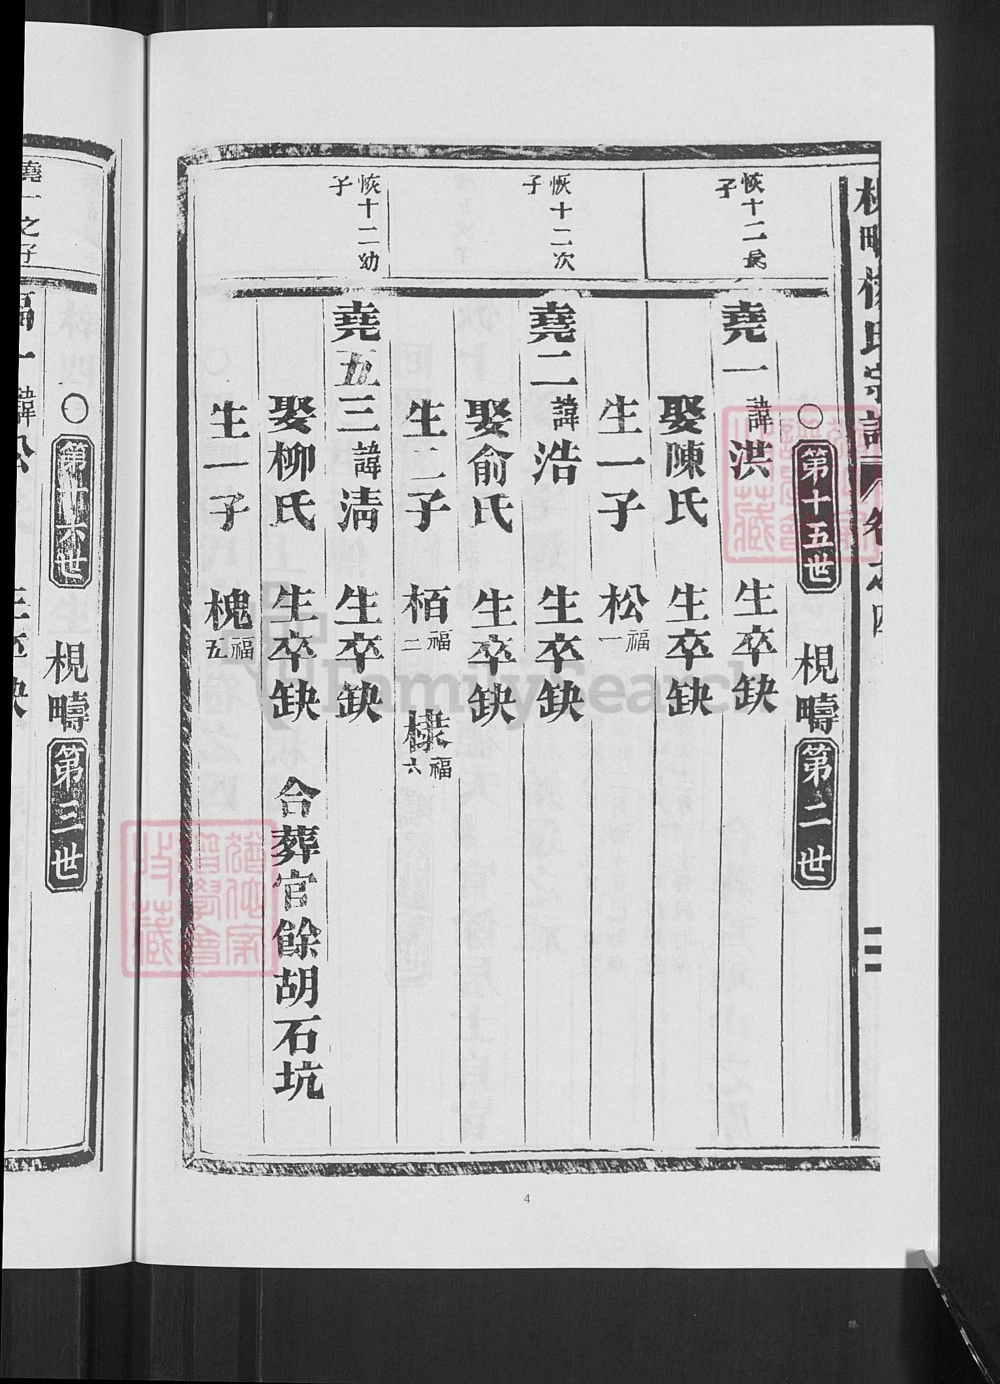 梘疇楊氏宗譜 卷之四
二
○第十五世 梘疇第二世
恢十二長子
堯一諱洪 生卒缺
娶陳氏 生卒缺
生一子 松福一
恢十二次子
堯二諱浩 生卒缺
娶俞氏 生卒缺
生二子 栢福二 棣福六
恢十二幼子
堯五三諱淸 生卒缺
娶柳氏 生卒缺 合葬官餘胡石坑
生一子 槐福五
4
○第十六世 梘疇第三世
堯一之子
福一諱松 生卒缺
FamilySearch